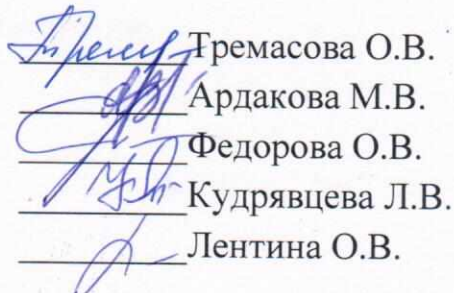 Тремасова О.В.
Ардакова М.В.
Федорова О.В.
Кудрявцева Л.В.
Лентина О.В.